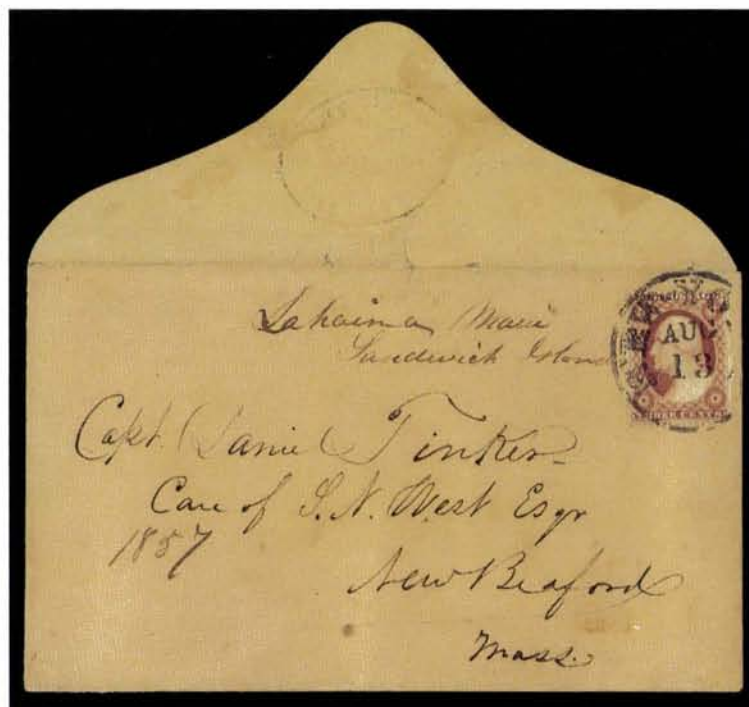 Lahaina Maui
Sandwich Islan
NEW YO
AUG
13
THREE CENTS
Capt. Daniel Tinker
Care of S. N. West Esqr
1857
New Beaford
Mass.